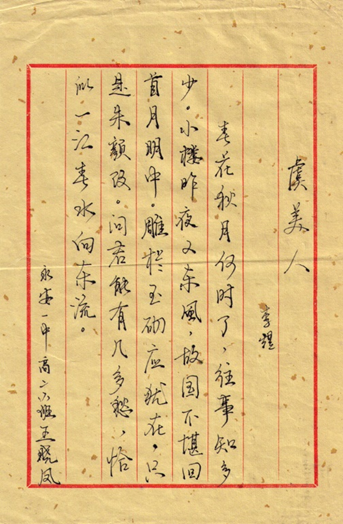 虞美人
李煜
春花秋月何时了，往事知多
少。小楼昨夜又东風，故国不堪回
首月明中。雕栏玉砌应犹在，只
是朱颜改。问君能有几多愁，恰
似一江春水向东流。
永安一中高二六班王晓凤